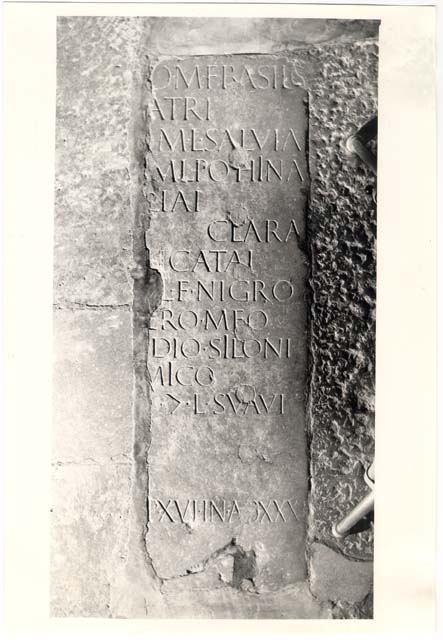 OMF BASILS
ATRI
ME SALVIA
ML POTHINA
RIAI
CLARA
CATAI
LF · NIGRO
RO · MEO
DIO · SILONI
MICO
Ↄ · L · SVAVI
P XVI · IN · A P XXX